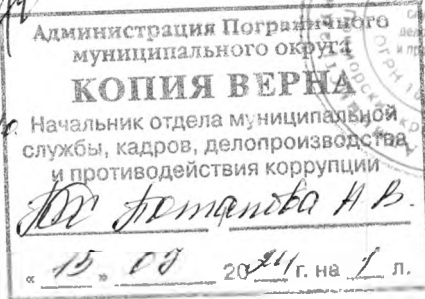 Администрация Пограничного
муниципального округа
КОПИЯ ВЕРНА
Начальник отдела муниципальной
службы, кадров, делопроизводства
и противодействия коррупции
Потапова А В.
« 15 » 07 2024 г. на 1 л.
ОГРН